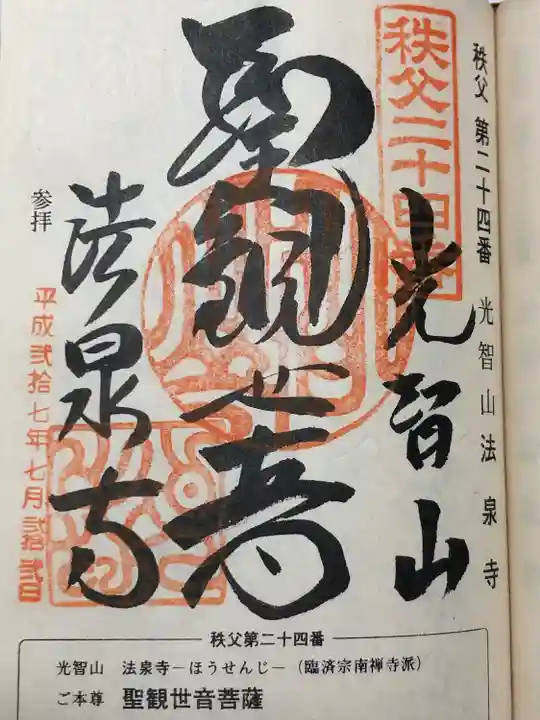 秩父 第二十四番 光智山法泉寺
秩父二十四番
光智山
聖観世音
法泉寺
参拝
平成弐拾七年七月弐拾弐日
秩父第二十四番
光智山 法泉寺−ほうせんじ−（臨済宗南禅寺派）
ご本尊 聖観世音菩薩